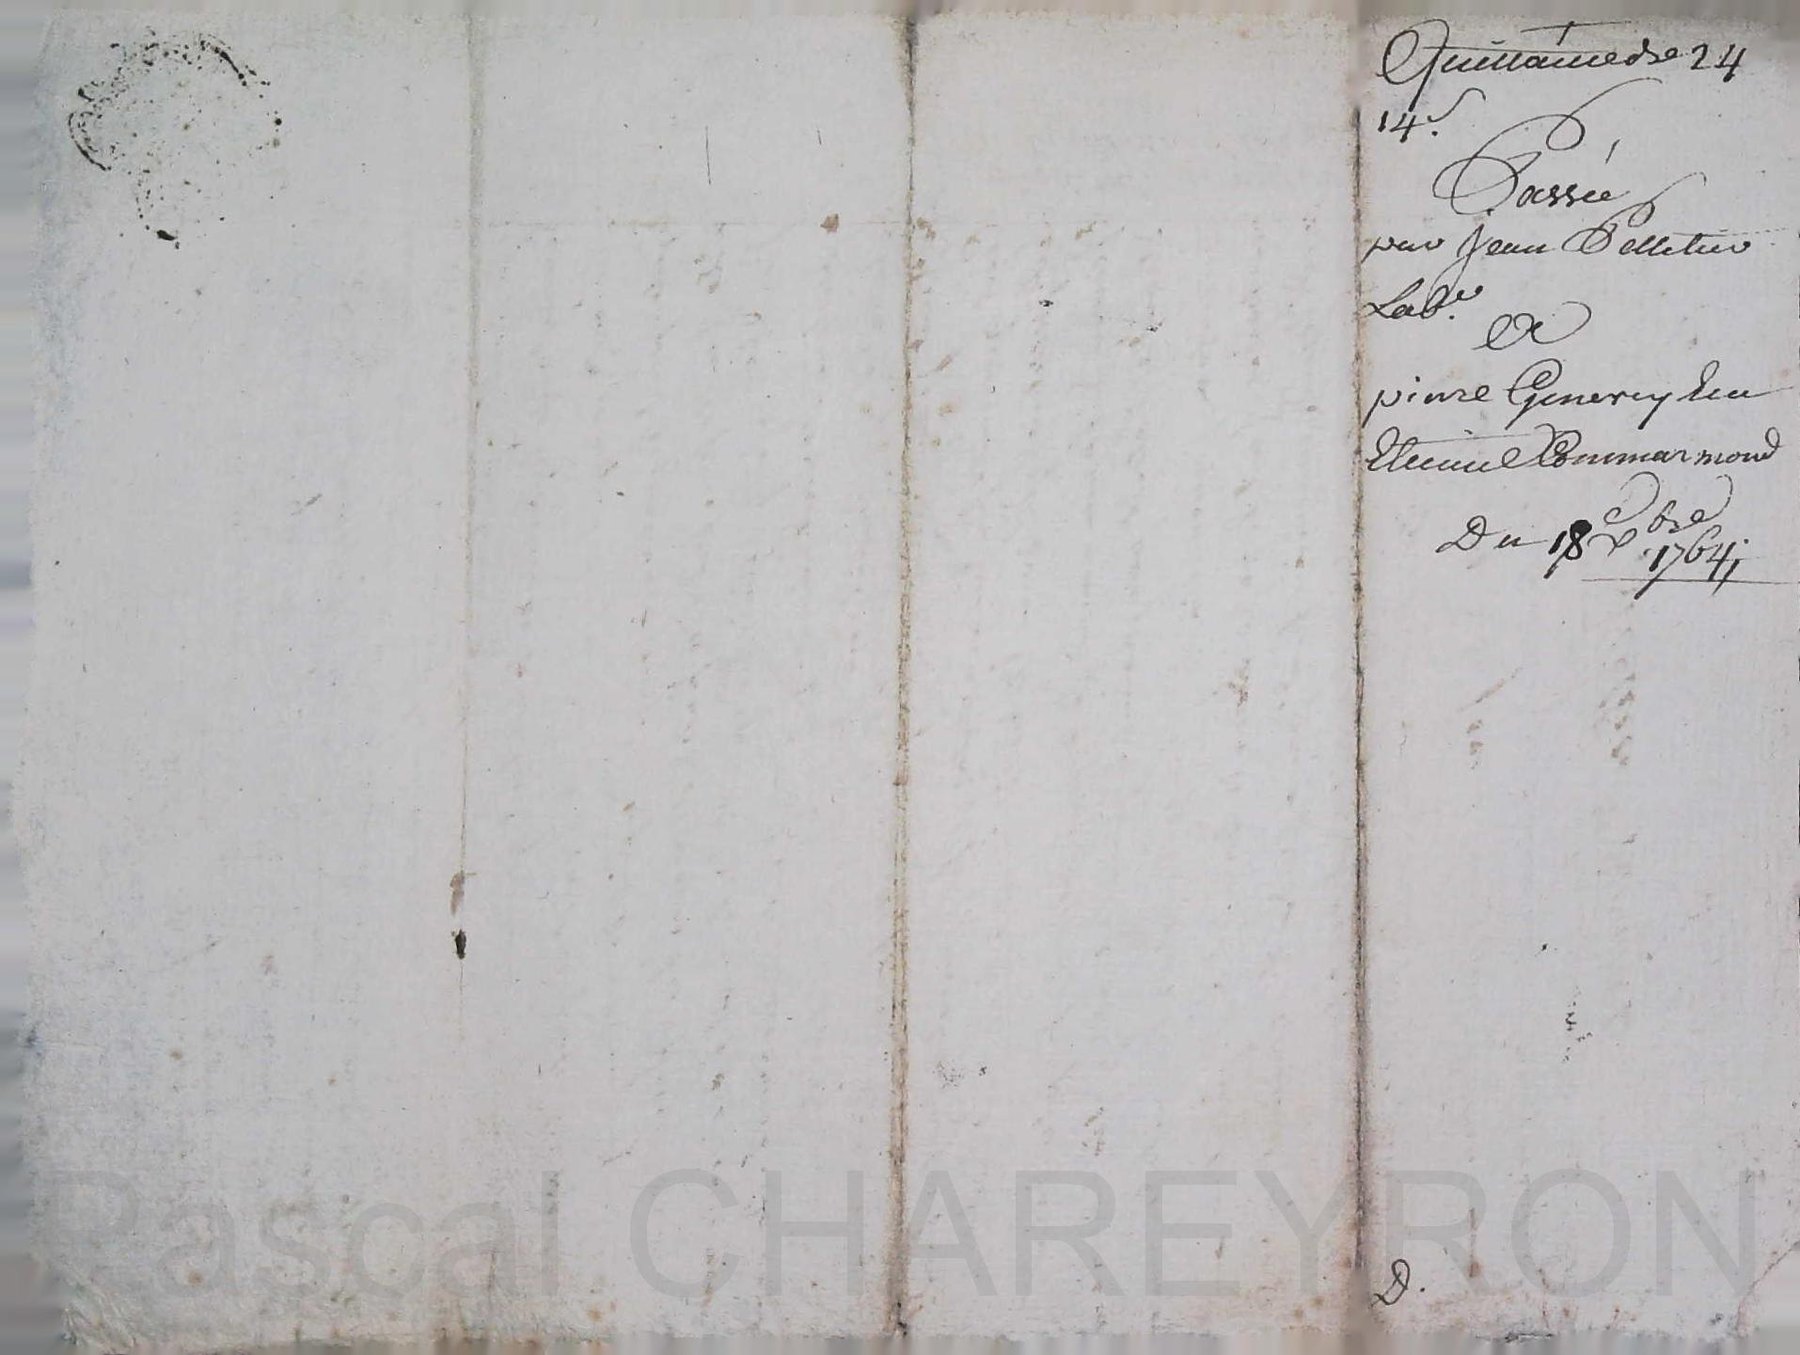 Quittance de 24
14ˢ.
Passée
par Jean Pelletier
Labʳ.
Et
pierre Generey
Etienne Commarmond
Du 18 bre 1764;
D.
Pascal CHAREYRON